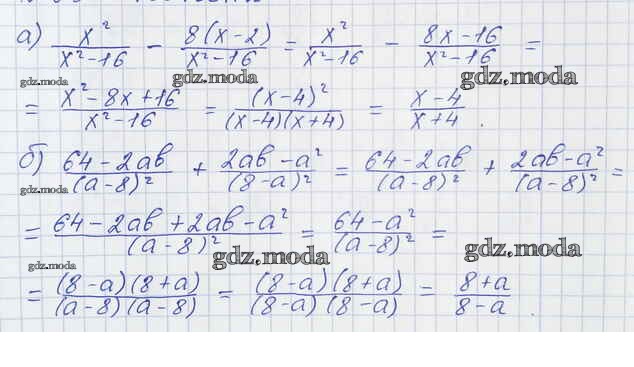 а) x²/(x²-16) - 8(x-2)/(x²-16) = x²/(x²-16) - (8x-16)/(x²-16) =
gdz.moda gdz.moda gdz.moda
= (x²-8x+16)/(x²-16) = (x-4)²/((x-4)(x+4)) = (x-4)/(x+4).
б) (64-2ab)/(a-8)² + (2ab-a²)/(8-a)² = (64-2ab)/(a-8)² + (2ab-a²)/(a-8)² =
gdz.moda
= (64-2ab+2ab-a²)/(a-8)² = (64-a²)/(a-8)² =
gdz.moda gdz.moda gdz.moda
= (8-a)(8+a)/((a-8)(a-8)) = (8-a)(8+a)/((8-a)(8-a)) = (8+a)/(8-a).